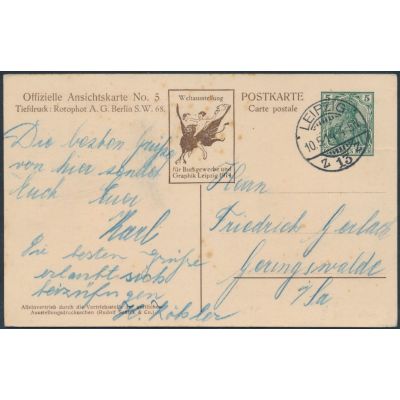 Offizielle Ansichtskarte No. 5
Tiefdruck: Rotophot A. G. Berlin S.W. 68.
Weltausstellung
für Buchgewerbe und
Graphik Leipzig 1914
POSTKARTE
Carte postale
5 5
LEIPZIG
10.5.14
2 13
Die besten Grüße
von hier sendet
Euch Euer
Karl
Die besten Grüße
erlaubt sich
beizufügen
H. Köhler
Herrn
Friedrich Gerlach
Geringswalde
i/Sa
Alleinvertrieb durch die Vertriebsstelle der amtlichen
Ausstellungsdrucksachen (Rudolf & Co.)